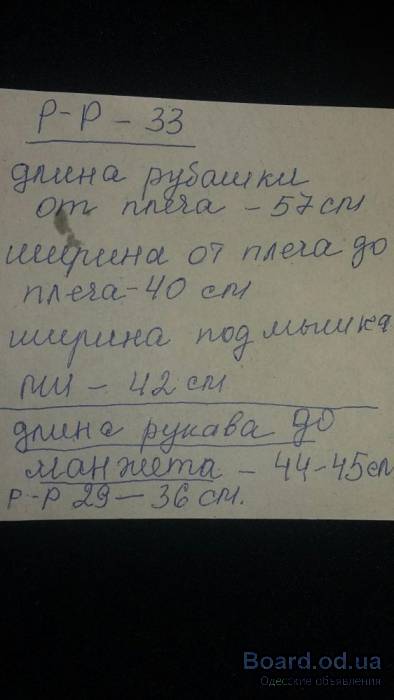 Р-Р - 33
длина рубашки
от плеча - 57 см
ширина от плеча до
плеча - 40 см
ширина под мышка
ми - 42 см
длина рукава до
манжета - 44-45 см
Р-Р 29 - 36 см.
Board.od.ua
Одесские объявления